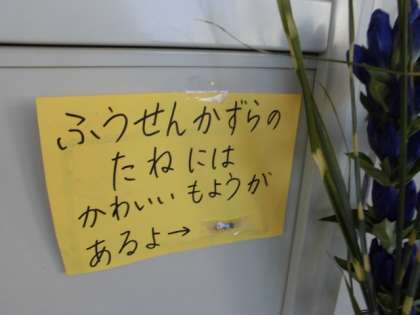 ふうせんかずらの
たねには
かわいいもようが
あるよ→